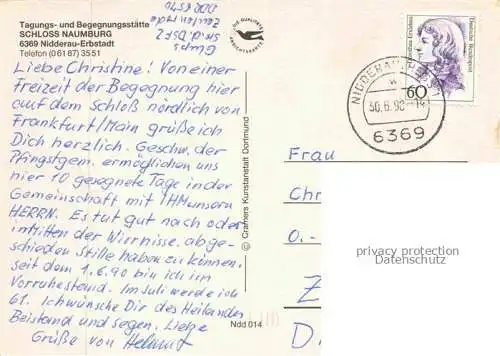 Tagungs- und Begegnungsstätte
SCHLOSS NAUMBURG
6369 Nidderau-Erbstadt
Telefon (06187) 3551
Liebe Christine! Von einer
Freizeit der Begegnung hier
auf dem Schloß nördlich von
Frankfurt/Main grüße ich
Dich herzlich. Geschw. der
Pfingstgem. ermöglichen uns
hier 10 gesegnete Tage in der
Gemeinschaft mit IHM unserm
HERRN. Es tut gut nach oder
inmitten der Wirrnisse, abge-
schieden Stille haben zu können.
Seit dem 1.6.90 bin ich im
Vorruhestand. Im Juli werde ich
61. Ich wünsche Dir des Heilandes
Beistand und Segen. Liebe
Grüße von Helmut
DIE QUALITÄTS
© Cramers Kunstanstalt Dortmund
Ndd 014
Deutsche Bundespost
60
NIDDERAU
30.6.90
6369
Frau
Ch
0.-
Z
D
privacy protection
Datenschutz